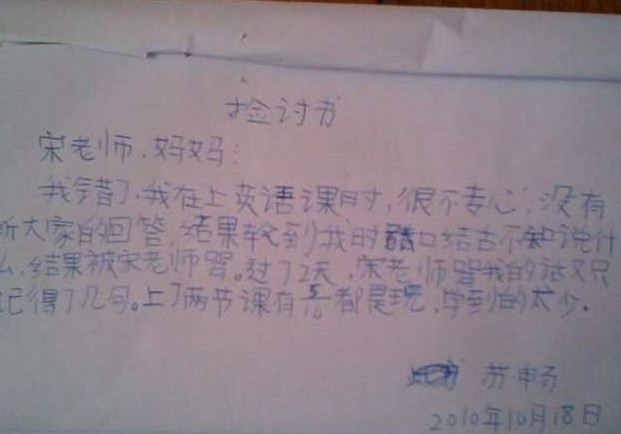 检讨书
宋老师.妈妈:
我错了.我在上英语课时,很不专心,没有
听大家的回答,结果轮到我时 口结舌不知说什
么.结果被宋老师骂。过了2天,宋老师骂我的话又只
记得了几句。上了两节课有 都是玩,学到的太少.
苏畅
2010年10月18日